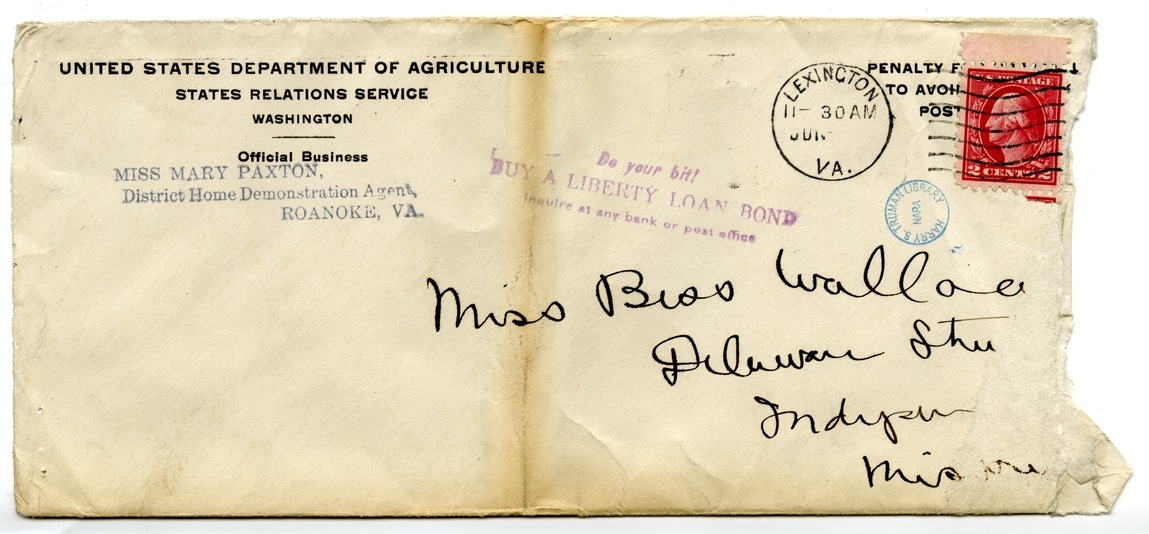 UNITED STATES DEPARTMENT OF AGRICULTURE
STATES RELATIONS SERVICE
WASHINGTON
Official Business
MISS MARY PAXTON,
District Home Demonstration Agent,
ROANOKE, VA.
Do your bit!
BUY A LIBERTY LOAN BOND
Inquire at any bank or post office
LEXINGTON
11- 30 AM
JUN
VA.
PENALTY F
TO AVOI
POST
U.S. POSTAGE
2 CENTS 2
HARRY S. TRUMAN LIBRARY
NARA
Miss Bess Wallac
Delaware Stre
Indepen
Miss